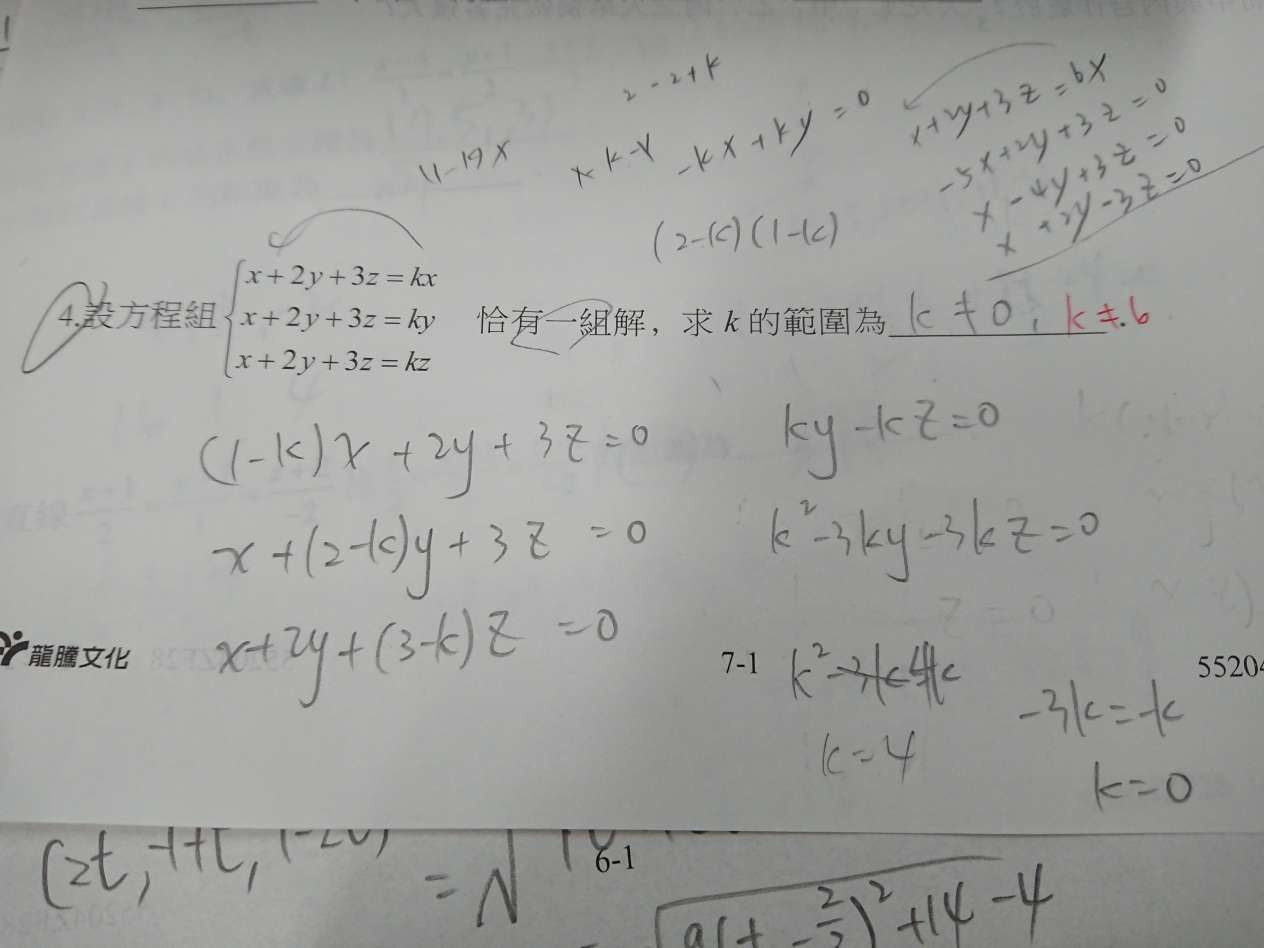 2-2+k
11-19x
x k-x -kx+ky=0
x+2y+3z=6x
-5x+2y+3z=0
x-4y+3z=0
x+2y-3z=0
(2-k)(1-k)
4.設方程組 x+2y+3z=kx
x+2y+3z=ky
x+2y+3z=kz
恰有一組解,求 k 的範圍為 k≠0, k≠.6
(1-k)x+2y+3z=0
ky-kz=0
x+(2-k)y+3z=0
k²-3ky-3kz=0
x+2y+(3-k)z=0
龍騰文化
7-1
5520
k=4
-3k=-k
k=0
(2t,-1+t,1-2t)
6-1